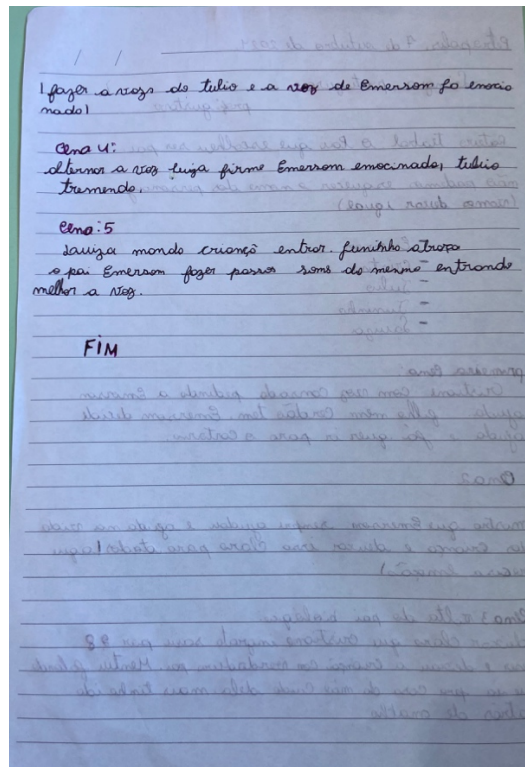 / /
(fazer a voz do tulio e a voz de Emerson fo emocio
nado)
Cena 4:
alternar a voz luiza firme Emerson emocinado, tulio
tremendo.
Cena: 5
Louiza manda criança entrar. Juninho abraça
o pai Emerson fazer passos sons do mesmo entrando
melhor a voz.
FIM